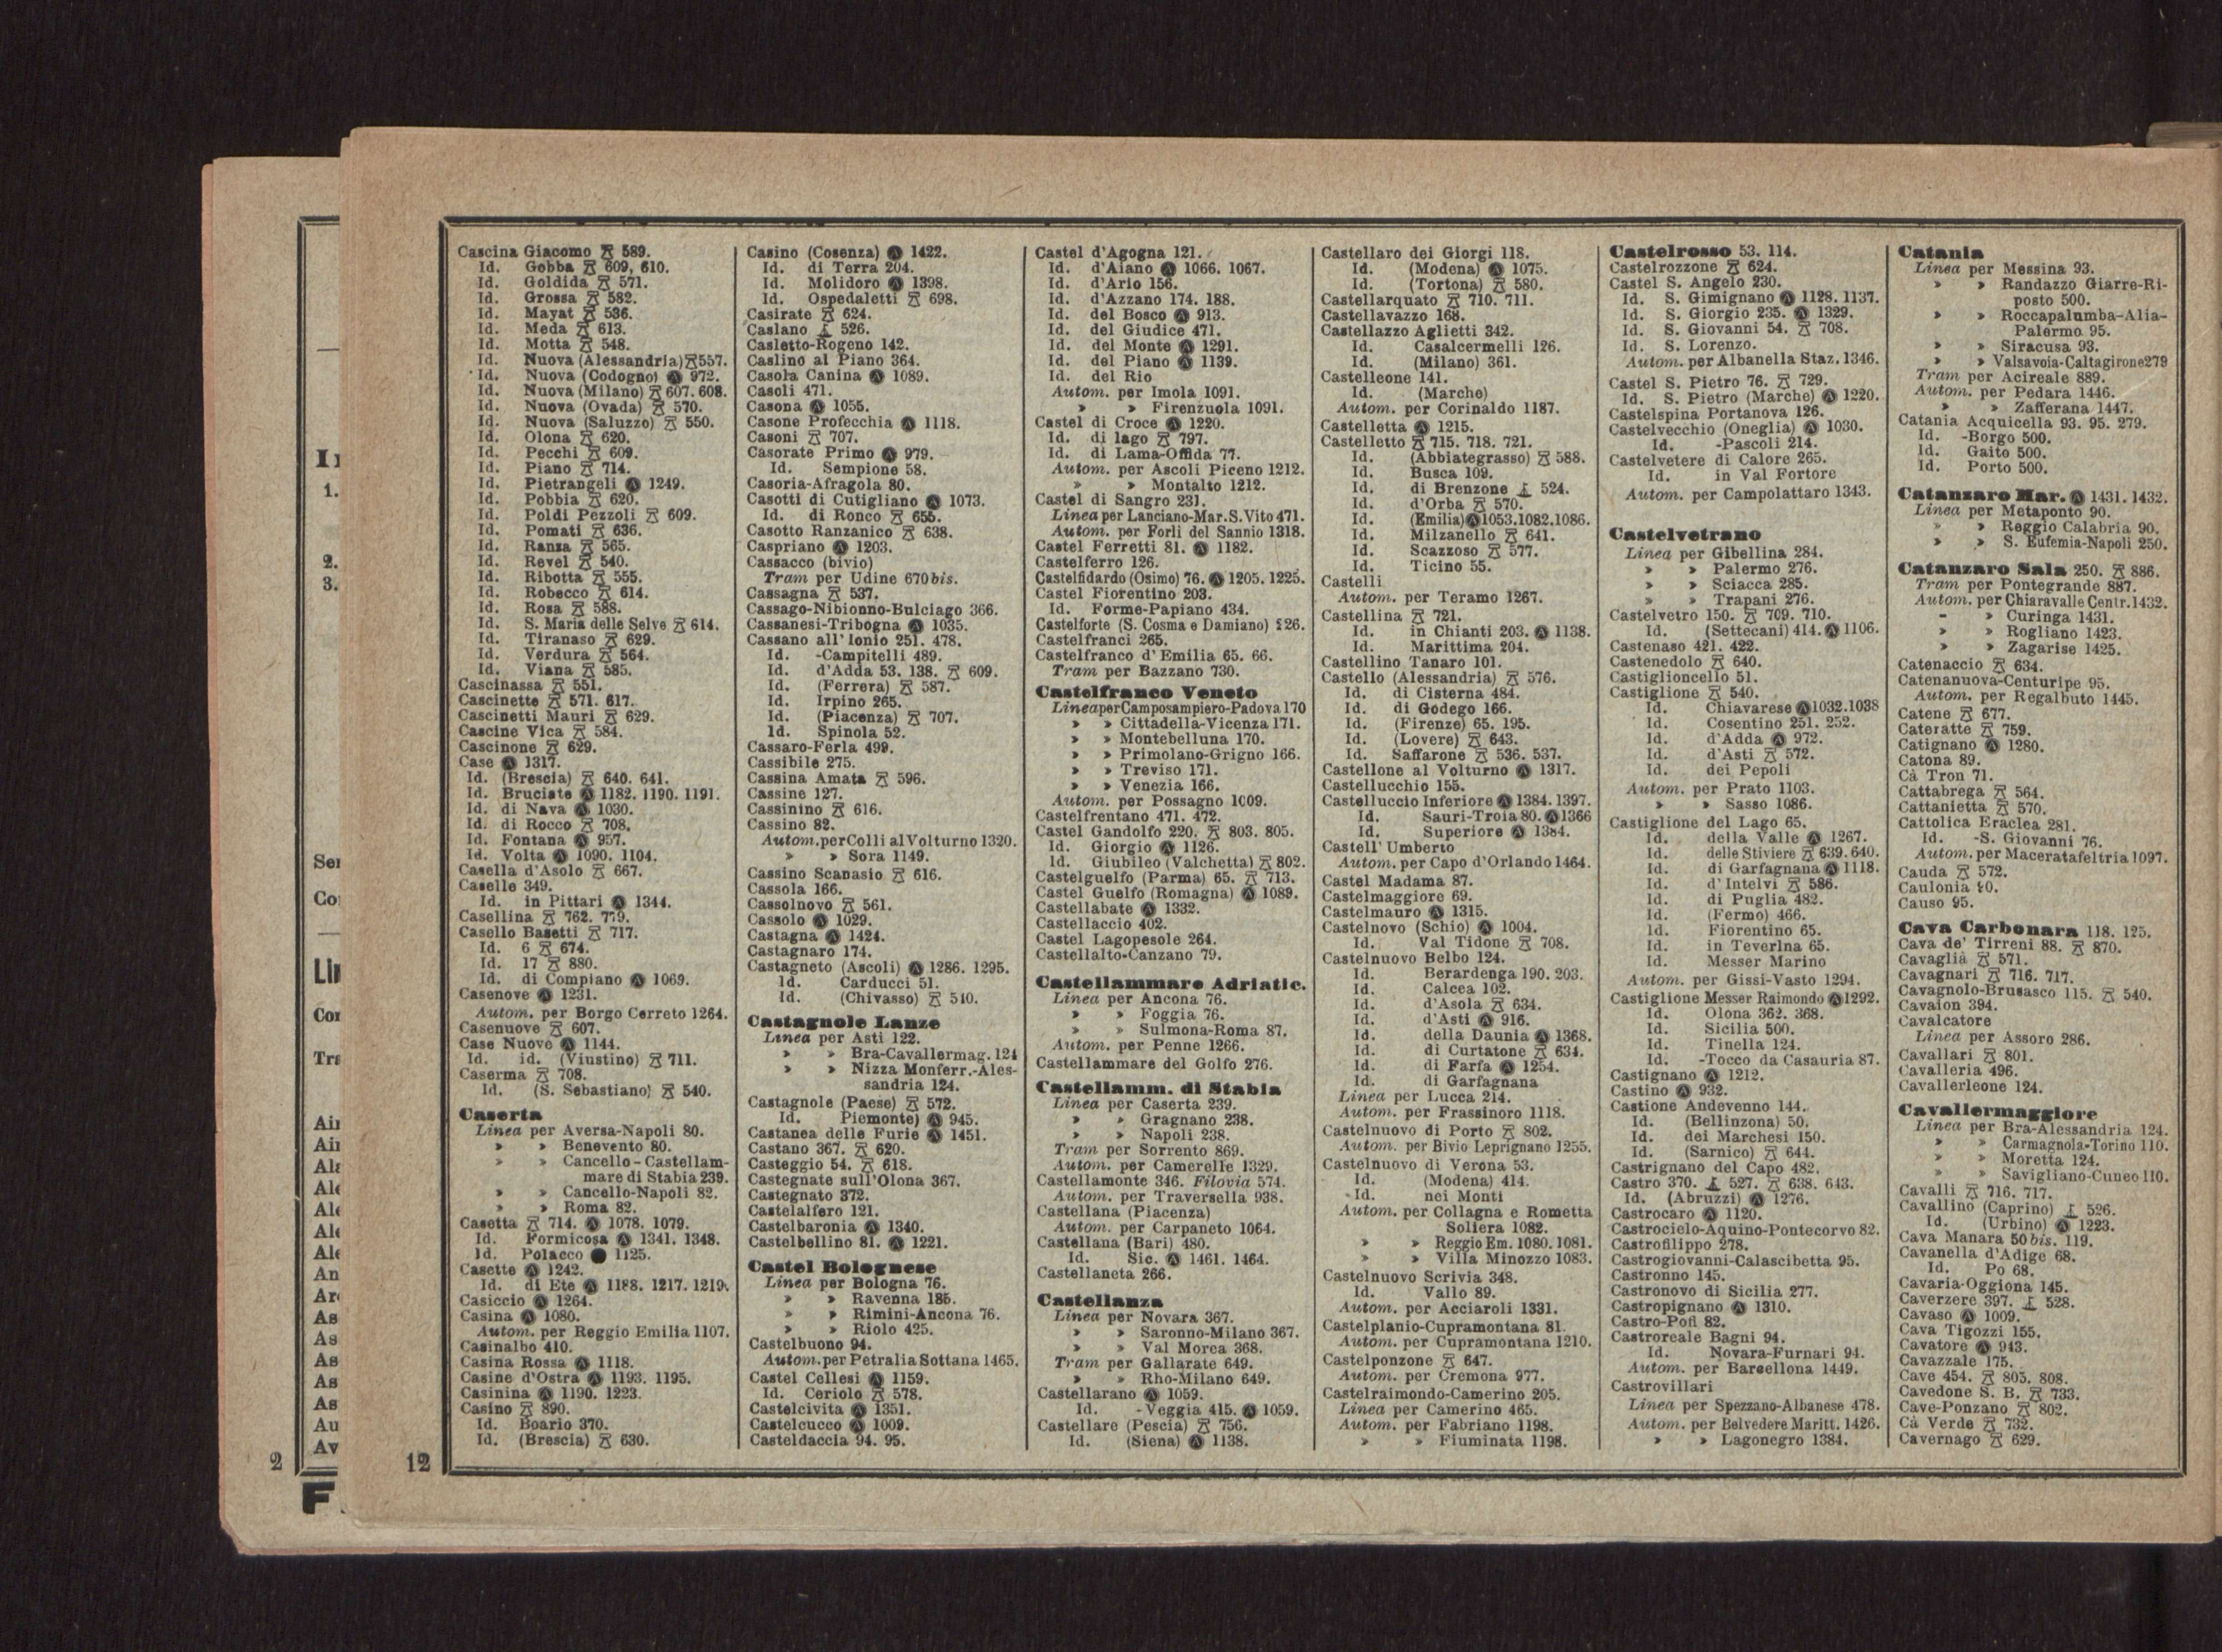 Cascina Giacomo 589.
Id. Gobba 609, 610.
Id. Goldida 571.
Id. Grossa 582.
Id. Mayat 536.
Id. Meda 613.
Id. Motta 548.
Id. Nuova (Alessandria) 557.
Id. Nuova (Codogno) Ⓐ 972.
Id. Nuova (Milano) 607. 608.
Id. Nuova (Ovada) 570.
Id. Nuova (Saluzzo) 550.
Id. Olona 620.
Id. Pecchi 609.
Id. Piano 714.
Id. Pietrangeli Ⓐ 1249.
Id. Pobbia 620.
Id. Poldi Pezzoli 609.
Id. Pomati 636.
Id. Ranza 565.
Id. Revel 540.
Id. Ribotta 555.
Id. Robecco 614.
Id. Rosa 588.
Id. S. Maria delle Selve 614.
Id. Tiranaso 629.
Id. Verdura 564.
Id. Viana 585.
Cascinassa 551.
Cascinette 571. 617.
Cascinetti Mauri 629.
Cascine Vica 584.
Cascinone 629.
Case Ⓐ 1317.
Id. (Brescia) 640. 641.
Id. Bruciate Ⓐ 1182. 1190. 1191.
Id. di Nava Ⓐ 1030.
Id. di Rocco 708.
Id. Fontana Ⓐ 957.
Id. Volta Ⓐ 1090. 1104.
Casella d'Asolo 667.
Caselle 349.
Id. in Pittari Ⓐ 1344.
Casellina 762. 779.
Casello Basetti 717.
Id. 6 674.
Id. 17 880.
Id. di Compiano Ⓐ 1069.
Casenove Ⓐ 1231.
Autom. per Borgo Cerreto 1264.
Casenuove 607.
Case Nuove Ⓐ 1144.
Id. id. (Viustino) 711.
Caserma 708.
Id. (S. Sebastiano) 540.
Caserta
Linea per Aversa-Napoli 80.
» » Benevento 80.
» » Cancello-Castellam-
mare di Stabia 239.
» » Cancello-Napoli 82.
» » Roma 82.
Casetta 714. Ⓐ 1078. 1079.
Id. Formicosa Ⓐ 1341. 1348.
Id. Polacco ● 1125.
Casette Ⓐ 1242.
Id. di Ete Ⓐ 1188. 1217. 1219.
Casiccio Ⓐ 1264.
Casina Ⓐ 1080.
Autom. per Reggio Emilia 1107.
Casinalbo 410.
Casina Rossa Ⓐ 1118.
Casine d'Ostra Ⓐ 1193. 1195.
Casinina Ⓐ 1190. 1223.
Casino 890.
Id. Boario 370.
Id. (Brescia) 630.
Casino (Cosenza) Ⓐ 1422.
Id. di Terra 204.
Id. Molidoro Ⓐ 1398.
Id. Ospedaletti 698.
Casirate 624.
Caslano 526.
Casletto-Rogeno 142.
Caslino al Piano 364.
Casola Canina Ⓐ 1089.
Casoli 471.
Casona Ⓐ 1055.
Casone Profecchia Ⓐ 1118.
Casoni 707.
Casorate Primo Ⓐ 979.
Id. Sempione 58.
Casoria-Afragola 80.
Casotti di Cutigliano Ⓐ 1073.
Id. di Ronco 655.
Casotto Ranzanico 638.
Caspriano Ⓐ 1203.
Cassacco (bivio)
Tram per Udine 670bis.
Cassagna 537.
Cassago-Nibionno-Bulciago 366.
Cassanesi-Tribogna Ⓐ 1035.
Cassano all'Ionio 251. 478.
Id. -Campitelli 489.
Id. d'Adda 53. 138. 609.
Id. (Ferrera) 587.
Id. Irpino 265.
Id. (Piacenza) 707.
Id. Spinola 52.
Cassaro-Ferla 499.
Cassibile 275.
Cassina Amata 596.
Cassine 127.
Cassinino 616.
Cassino 82.
Autom. per Colli al Volturno 1320.
» » Sora 1149.
Cassino Scanasio 616.
Cassola 166.
Cassolnovo 561.
Cassolo Ⓐ 1029.
Castagna Ⓐ 1424.
Castagnaro 174.
Castagneto (Ascoli) Ⓐ 1286. 1295.
Id. Carducci 51.
Id. (Chivasso) 540.
Castagnole Lanze
Linea per Asti 122.
» » Bra-Cavallermag. 124
» » Nizza Monferr.-Ales-
sandria 124.
Castagnole (Paese) 572.
Id. Piemonte) Ⓐ 945.
Castanea delle Furie Ⓐ 1451.
Castano 367. 620.
Casteggio 54. 618.
Castegnate sull'Olona 367.
Castegnato 372.
Castelalfero 121.
Castelbaronia Ⓐ 1340.
Castelbellino 81. Ⓐ 1221.
Castel Bolognese
Linea per Bologna 76.
» » Ravenna 185.
» » Rimini-Ancona 76.
» » Riolo 425.
Castelbuono 94.
Autom. per Petralia Sottana 1465.
Castel Cellesi Ⓐ 1159.
Id. Ceriolo 578.
Castelcivita Ⓐ 1351.
Castelcucco Ⓐ 1009.
Casteldaccia 94. 95.
Castel d'Agogna 121.
Id. d'Aiano Ⓐ 1066. 1067.
Id. d'Ario 156.
Id. d'Azzano 174. 188.
Id. del Bosco Ⓐ 913.
Id. del Giudice 471.
Id. del Monte Ⓐ 1291.
Id. del Piano Ⓐ 1139.
Id. del Rio
Autom. per Imola 1091.
» » Firenzuola 1091.
Castel di Croce Ⓐ 1220.
Id. di lago 797.
Id. di Lama-Offida 77.
Autom. per Ascoli Piceno 1212.
» » Montalto 1212.
Castel di Sangro 231.
Linea per Lanciano-Mar.S.Vito 471.
Autom. per Forlì del Sannio 1318.
Castel Ferretti 81. Ⓐ 1182.
Castelferro 126.
Castelfidardo (Osimo) 76. Ⓐ 1205. 1225.
Castel Fiorentino 203.
Id. Forme-Papiano 434.
Castelforte (S. Cosma e Damiano) 226.
Castelfranci 265.
Castelfranco d'Emilia 65. 66.
Tram per Bazzano 730.
Castelfranco Veneto
Linea per Camposampiero-Padova 170
» » Cittadella-Vicenza 171.
» » Montebelluna 170.
» » Primolano-Grigno 166.
» » Treviso 171.
» » Venezia 166.
Autom. per Possagno 1009.
Castelfrentano 471. 472.
Castel Gandolfo 220. 803. 805.
Id. Giorgio Ⓐ 1126.
Id. Giubileo (Valchetta) 802.
Castelguelfo (Parma) 65. 713.
Castel Guelfo (Romagna) Ⓐ 1089.
Castellabate Ⓐ 1332.
Castellaccio 402.
Castel Lagopesole 264.
Castellalto-Canzano 79.
Castellammare Adriatic.
Linea per Ancona 76.
» » Foggia 76.
» » Sulmona-Roma 87.
Autom. per Penne 1266.
Castellammare del Golfo 276.
Castellamm. di Stabia
Linea per Caserta 239.
» » Gragnano 238.
» » Napoli 238.
Tram per Sorrento 869.
Autom. per Camerelle 1329.
Castellamonte 346. Filovia 574.
Autom. per Traversella 938.
Castellana (Piacenza)
Autom. per Carpaneto 1064.
Castellana (Bari) 480.
Id. Sic. Ⓐ 1461. 1464.
Castellaneta 266.
Castellanza
Linea per Novara 367.
» » Saronno-Milano 367.
» » Val Morea 368.
Tram per Gallarate 649.
» » Rho-Milano 649.
Castellarano Ⓐ 1059.
Id. -Veggia 415. Ⓐ 1059.
Castellare (Pescia) 756.
Id. (Siena) Ⓐ 1138.
Castellaro dei Giorgi 118.
Id. (Modena) Ⓐ 1075.
Id. (Tortona) 580.
Castellarquato 710. 711.
Castellavazzo 168.
Castellazzo Aglietti 342.
Id. Casalcermelli 126.
Id. (Milano) 361.
Castelleone 141.
Id. (Marche)
Autom. per Corinaldo 1187.
Castelletta Ⓐ 1215.
Castelletto 715. 718. 721.
Id. (Abbiategrasso) 588.
Id. Busca 109.
Id. di Brenzone 524.
Id. d'Orba 570.
Id. (Emilia) Ⓐ 1053.1082.1086.
Id. Milzanello 641.
Id. Scazzoso 577.
Id. Ticino 55.
Castelli
Autom. per Teramo 1267.
Castellina 721.
Id. in Chianti 203. Ⓐ 1138.
Id. Marittima 204.
Castellino Tanaro 101.
Castello (Alessandria) 576.
Id. di Cisterna 484.
Id. di Godego 166.
Id. (Firenze) 65. 195.
Id. (Lovere) 643.
Id. Saffarone 536. 537.
Castellone al Volturno Ⓐ 1317.
Castellucchio 155.
Castelluccio Inferiore Ⓐ 1384. 1397.
Id. Sauri-Troia 80. Ⓐ 1366
Id. Superiore Ⓐ 1384.
Castell'Umberto
Autom. per Capo d'Orlando 1464.
Castel Madama 87.
Castelmaggiore 69.
Castelmauro Ⓐ 1315.
Castelnovo (Schio) Ⓐ 1004.
Id. Val Tidone 708.
Castelnuovo Belbo 124.
Id. Berardenga 190. 203.
Id. Calcea 102.
Id. d'Asola 634.
Id. d'Asti Ⓐ 916.
Id. della Daunia Ⓐ 1368.
Id. di Curtatone 634.
Id. di Farfa Ⓐ 1254.
Id. di Garfagnana
Linea per Lucca 214.
Autom. per Frassinoro 1118.
Castelnuovo di Porto 802.
Autom. per Bivio Leprignano 1255.
Castelnuovo di Verona 53.
Id. (Modena) 414.
Id. nei Monti
Autom. per Collagna e Rometta
Soliera 1082.
» » Reggio Em. 1080. 1081.
» » Villa Minozzo 1083.
Castelnuovo Scrivia 348.
Id. Vallo 89.
Autom. per Acciaroli 1331.
Castelplanio-Cupramontana 81.
Autom. per Cupramontana 1210.
Castelponzone 647.
Autom. per Cremona 977.
Castelraimondo-Camerino 205.
Linea per Camerino 465.
Autom. per Fabriano 1198.
» » Fiuminata 1198.
Castelrosso 53. 114.
Castelrozzone 624.
Castel S. Angelo 230.
Id. S. Gimignano Ⓐ 1128. 1137.
Id. S. Giorgio 235. Ⓐ 1329.
Id. S. Giovanni 54. 708.
Id. S. Lorenzo.
Autom. per Albanella Staz. 1346.
Castel S. Pietro 76. 729.
Id. S. Pietro (Marche) Ⓐ 1220.
Castelspina Portanova 126.
Castelvecchio (Oneglia) Ⓐ 1030.
Id. -Pascoli 214.
Castelvetere di Calore 265.
Id. in Val Fortore
Autom. per Campolattaro 1343.
Castelvetrano
Linea per Gibellina 284.
» » Palermo 276.
» » Sciacca 285.
» » Trapani 276.
Castelvetro 150. 709. 710.
Id. (Settecani) 414. Ⓐ 1106.
Castenaso 421. 422.
Castenedolo 640.
Castiglioncello 51.
Castiglione 540.
Id. Chiavarese Ⓐ 1032.1038
Id. Cosentino 251. 252.
Id. d'Adda Ⓐ 972.
Id. d'Asti 572.
Id. dei Pepoli
Autom. per Prato 1103.
» » Sasso 1086.
Castiglione del Lago 65.
Id. della Valle Ⓐ 1267.
Id. delle Stiviere 639. 640.
Id. di Garfagnana Ⓐ 1118.
Id. d'Intelvi 586.
Id. di Puglia 482.
Id. (Fermo) 466.
Id. Fiorentino 65.
Id. in Teverina 65.
Id. Messer Marino
Autom. per Gissi-Vasto 1294.
Castiglione Messer Raimondo Ⓐ 1292.
Id. Olona 362. 368.
Id. Sicilia 500.
Id. Tinella 124.
Id. -Tocco da Casauria 87.
Castignano Ⓐ 1212.
Castino Ⓐ 932.
Castione Andevenno 144.
Id. (Bellinzona) 50.
Id. dei Marchesi 150.
Id. (Sarnico) 644.
Castrignano del Capo 482.
Castro 370. 527. 638. 643.
Id. (Abruzzi) Ⓐ 1276.
Castrocaro Ⓐ 1120.
Castrocielo-Aquino-Pontecorvo 82.
Castrofilippo 278.
Castrogiovanni-Calascibetta 95.
Castronno 145.
Castronovo di Sicilia 277.
Castropignano Ⓐ 1310.
Castro-Pofi 82.
Castroreale Bagni 94.
Id. Novara-Furnari 94.
Autom. per Barcellona 1449.
Castrovillari
Linea per Spezzano-Albanese 478.
Autom. per Belvedere Maritt. 1426.
» » Lagonegro 1384.
Catania
Linea per Messina 93.
» » Randazzo Giarre-Ri-
posto 500.
» » Roccapalumba-Alia-
Palermo 95.
» » Siracusa 93.
» » Valsavoia-Caltagirone 279
Tram per Acireale 889.
Autom. per Pedara 1446.
» » Zafferana 1447.
Catania Acquicella 93. 95. 279.
Id. -Borgo 500.
Id. Gaito 500.
Id. Porto 500.
Catanzaro Mar. Ⓐ 1431. 1432.
Linea per Metaponto 90.
» » Reggio Calabria 90.
» » S. Eufemia-Napoli 250.
Catanzaro Sala 250. 886.
Tram per Pontegrande 887.
Autom. per Chiaravalle Centr. 1432.
» » Curinga 1431.
» » Rogliano 1423.
» » Zagarise 1425.
Catenaccio 634.
Catenanuova-Centuripe 95.
Autom. per Regalbuto 1445.
Catene 677.
Cateratte 759.
Catignano Ⓐ 1280.
Catona 89.
Cà Tron 71.
Cattabrega 564.
Cattanietta 570.
Cattolica Eraclea 281.
Id. -S. Giovanni 76.
Autom. per Maceratafeltria 1097.
Cauda 572.
Caulonia 90.
Causo 95.
Cava Carbonara 118. 125.
Cava de' Tirreni 88. 870.
Cavaglià 571.
Cavagnari 716. 717.
Cavagnolo-Brusasco 115. 540.
Cavaion 394.
Cavalcatore
Linea per Assoro 286.
Cavallari 801.
Cavalleria 496.
Cavallerleone 124.
Cavallermaggiore
Linea per Bra-Alessandria 124.
» » Carmagnola-Torino 110.
» » Moretta 124.
» » Savigliano-Cuneo 110.
Cavalli 716. 717.
Cavallino (Caprino) 526.
Id. (Urbino) Ⓐ 1223.
Cava Manara 50bis. 119.
Cavanella d'Adige 68.
Id. Po 68.
Cavaria-Oggiona 145.
Caverzere 397. 528.
Cavaso Ⓐ 1009.
Cava Tigozzi 155.
Cavatore Ⓐ 943.
Cavazzale 175.
Cave 454. 805. 808.
Cavedone S. B. 733.
Cave-Ponzano 802.
Cà Verde 732.
Cavernago 629.
12
1.
2.
3.
Ser
Lin
Air
Air
Ala
Ale
Ale
Ale
Ale
An
As
As
As
As
As
Au
Av
2
F